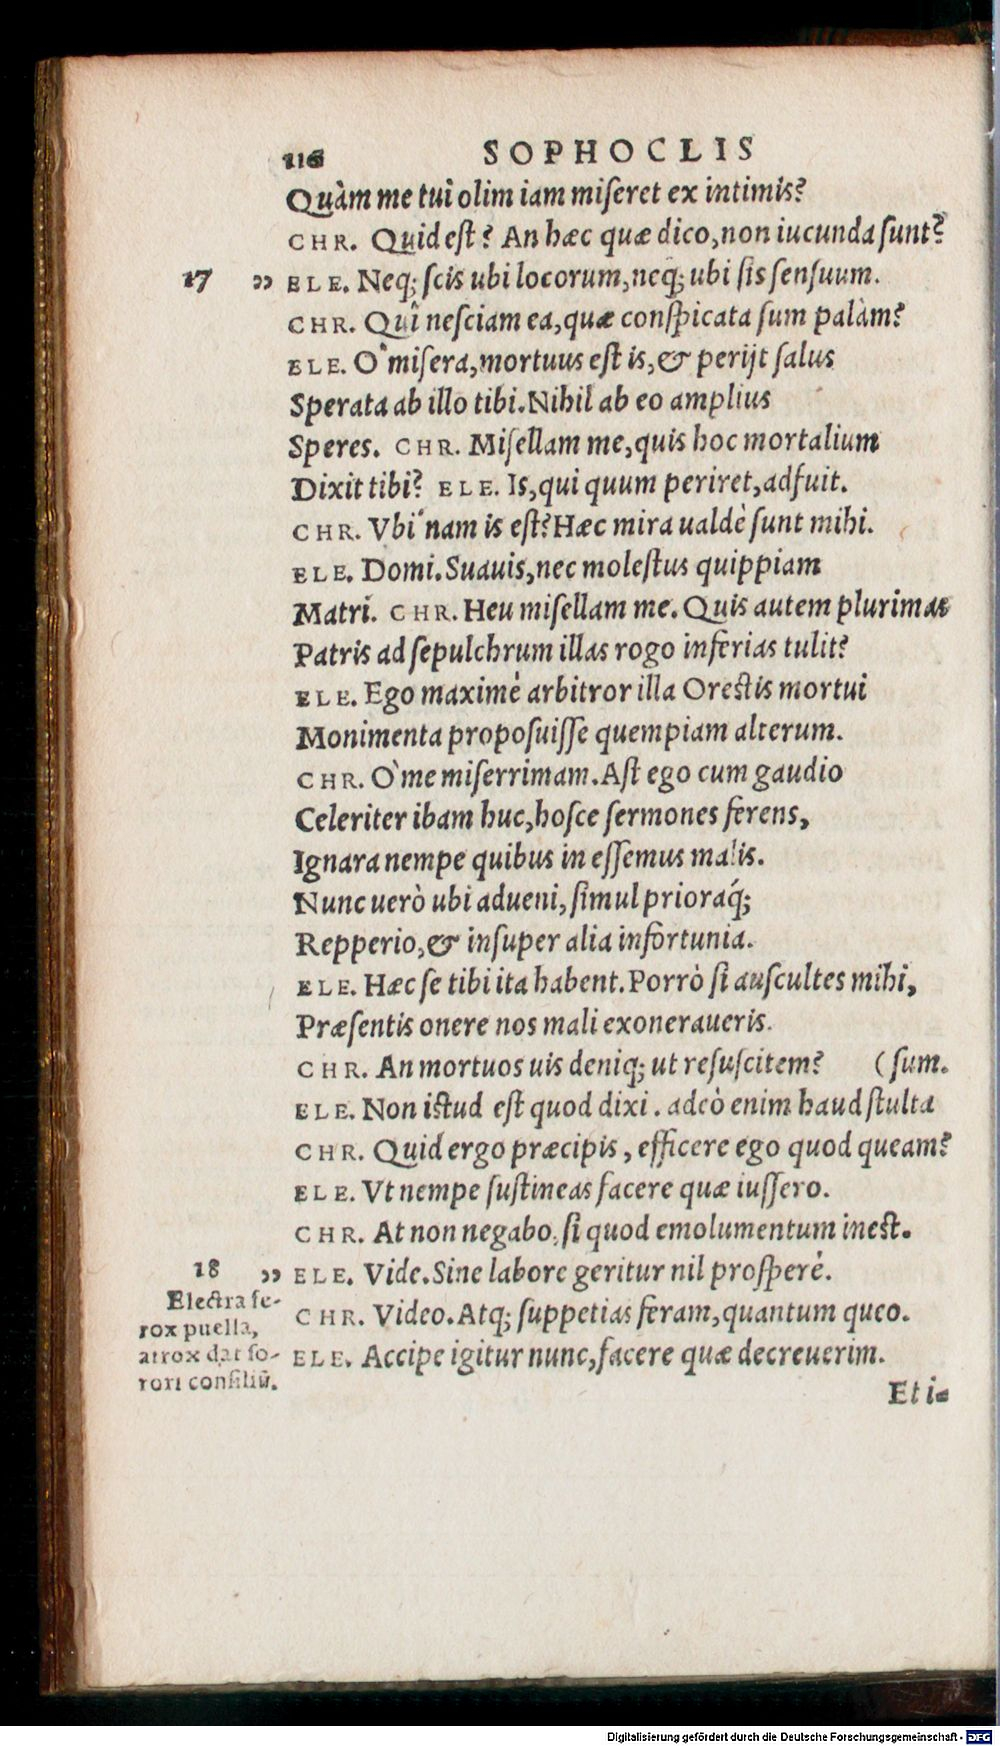 116 SOPHOCLIS
Quàm me tui olim iam miſeret ex intimis?
CHR. Quid eſt? An hæc quæ dico, non iucunda ſunt?
17 „ ELE. Neq; ſcis ubi locorum, neq; ubi ſis ſenſuum.
CHR. Quî neſciam ea, quæ conſpicata ſum palàm?
ELE. O' miſera, mortuus eſt is, & perijt ſalus
Sperata ab illo tibi. Nihil ab eo amplius
Speres. CHR. Miſellam me, quis hoc mortalium
Dixit tibi? ELE. Is, qui quum periret, adfuit.
CHR. Vbi'nam is eſt? Hæc mira ualdè ſunt mihi.
ELE. Domi. Suauis, nec moleſtus quippiam
Matri. CHR. Heu miſellam me. Quis autem plurimas
Patris ad ſepulchrum illas rogo inferias tulit?
ELE. Ego maximè arbitror illa Orestis mortui
Monimenta propoſuiſſe quempiam alterum.
CHR. O' me miſerrimam. Aſt ego cum gaudio
Celeriter ibam huc, hoſce ſermones ferens,
Ignara nempe quibus in eſſemus malis.
Nunc uerò ubi adueni, ſimul prioraq́;
Repperio, & inſuper alia infortunia.
ELE. Hæc ſe tibi ita habent. Porrò ſi auſcultes mihi,
Præſentis onere nos mali exoneraueris.
CHR. An mortuos uis deniq; ut reſuſcitem? (ſum.
ELE. Non istud eſt quod dixi. adeò enim haud ſtulta
CHR. Quid ergo præcipis, efficere ego quod queam?
ELE. Vt nempe ſuſtineas facere quæ iuſſero.
CHR. At non negabo, ſi quod emolumentum inest.
18 „ ELE. Vide. Sine labore geritur nil proſperè.
Electra fe-
rox puella,
atrox dat ſo-
rori conſiliũ.
CHR. Video. Atq; ſuppetias feram, quantum queo.
ELE. Accipe igitur nunc, facere quæ decreuerim.
Eti-
Digitalisierung gefördert durch die Deutsche Forschungsgemeinschaft - DFG